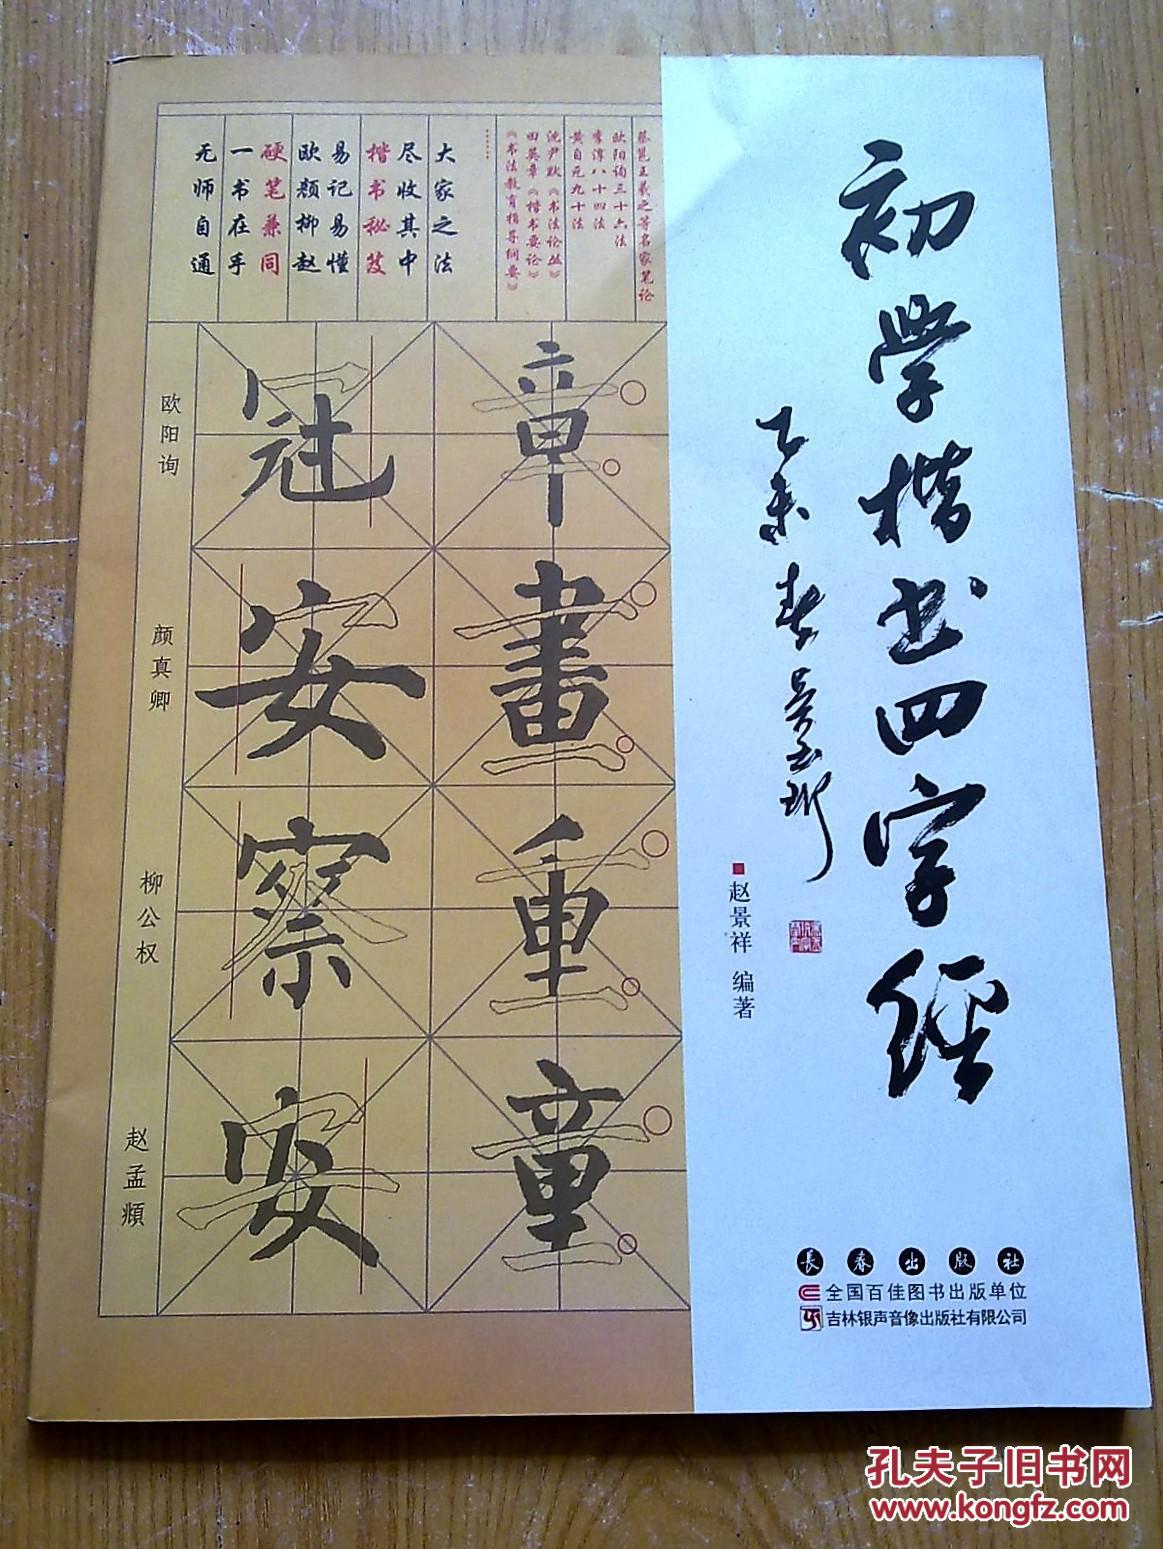 初学楷书四字经
乙未春吴玉珩
赵景祥 编著
蔡邕王羲之等名家笔论
欧阳询三十六法
李淳八十四法
黄自元九十法
沈尹默《书法论丛》
田英章《楷书要论》
《书法教育指导纲要》
……
大家之法
尽收其中
楷书秘笈
易记易懂
欧颜柳赵
硬笔兼同
一书在手
无师自通
章
畫
重
童
冠
安
察
安
欧阳询
颜真卿
柳公权
赵孟頫
長春出版社
全国百佳图书出版单位
吉林银声音像出版社有限公司
孔夫子旧书网
www.kongfz.com